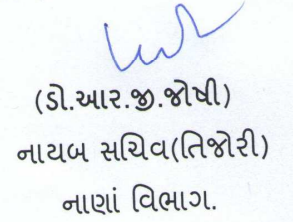 (ડો.આર.જી.જોષી)
નાયબ સચિવ(તિજોરી)
નાણાં વિભાગ.